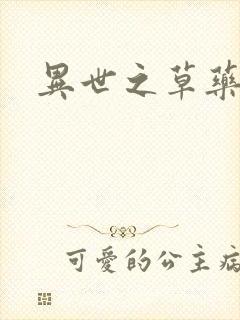 異世之草藥
可愛的公主病